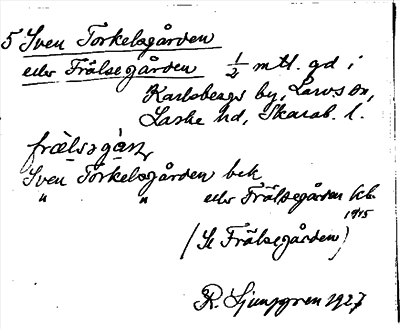 5 Sven Torkelsgården
eller Frälsegården 1/2 mtl. gd i
Karlsbergs by, Larvs sn,
Laske hd, Skarab. l.
frælsəgàrn
Sven Torkelsgården bek
" " eller Frälsegården kb.
1915
(Se Frälsegården)
R. Ljunggren 1927